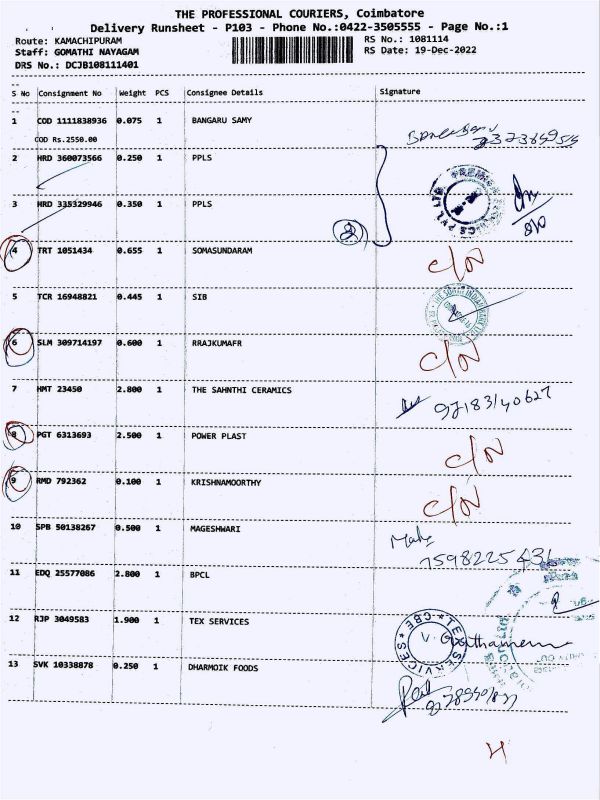 THE PROFESSIONAL COURIERS, Coimbatore
Delivery Runsheet - P103 - Phone No.:0422-3505555 - Page No.:1
Route: KAMACHIPURAM RS No.: 1081114
Staff: GOMATHI NAYAGAM RS Date: 19-Dec-2022
DRS No.: DCJB108111401
S No Consignment No Weight PCS Consignee Details Signature
1 COD 1111838936 0.075 1 BANGARU SAMY
COD Rs.2550.00
2 HRD 360073566 0.250 1 PPLS
3 HRD 335329946 0.350 1 PPLS
2
4 TRT 1051434 0.655 1 SOMASUNDARAM C/N
5 TCR 16948821 0.445 1 SIB
6 SLM 309714197 0.600 1 RRAJKUMAFR C/N
7 HMT 23450 2.800 1 THE SAHNTHI CERAMICS 92183140627
8 PGT 6313693 2.500 1 POWER PLAST C/N
9 RMD 792362 0.100 1 KRISHNAMOORTHY C/N
10 SPB 50138267 0.500 1 MAGESHWARI
7598225431
11 EDQ 25577086 2.800 1 BPCL
12 RJP 3049583 1.900 1 TEX SERVICES TEX SERVICES CBE
13 SVK 10338878 0.250 1 DHARMOIK FOODS
4